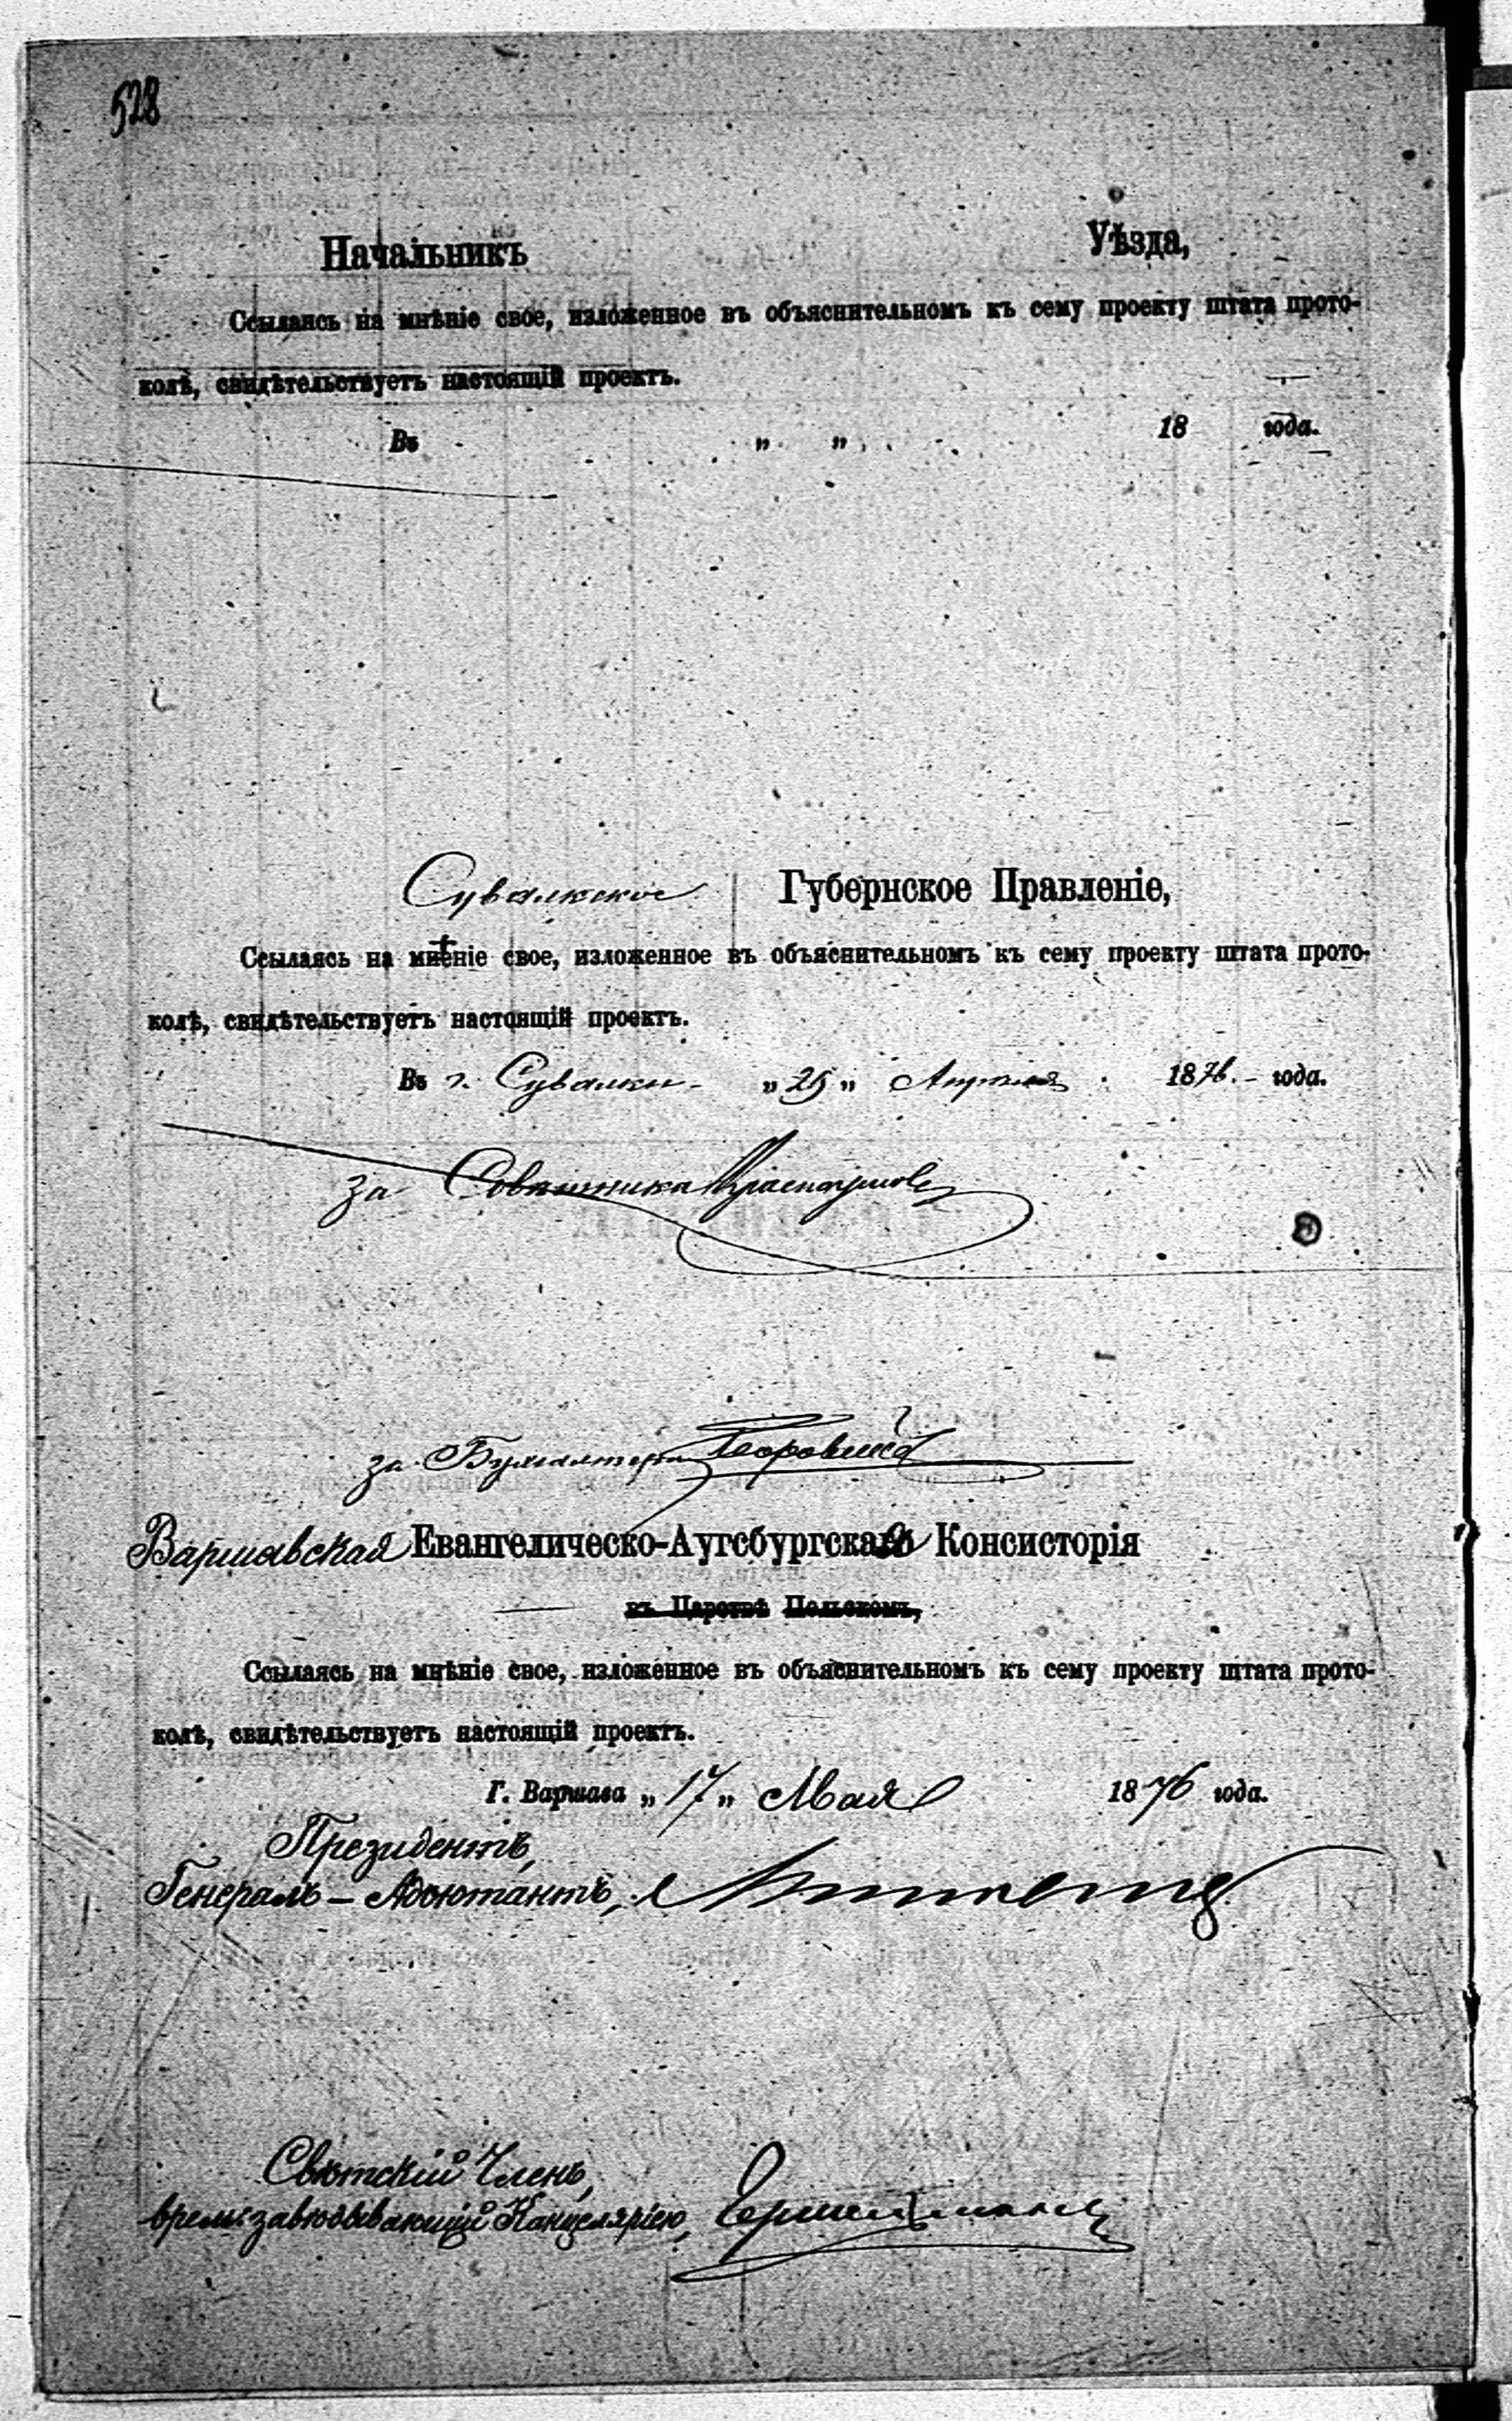 528
Начальникъ Уѣзда,
Ссылаясь на мнѣніе свое, изложенное въ объяснительномъ къ сему проекту штата прото-
колѣ, свидѣтельствуетъ настоящій проектъ.
Въ „ „ 18 года.
Сувалкское Губернское Правленіе,
Ссылаясь на мнѣніе свое, изложенное въ объяснительномъ къ сему проекту штата прото-
колѣ, свидѣтельствуетъ настоящій проектъ.
Въ г. Сувалки - „ 25 „ Апрѣля 1876. - года.
за Совѣтника
за Бухгалтера
Варшавская Евангелическо-Аугсбургская Консисторія
въ Царствѣ Польскомъ,
Ссылаясь на мнѣніе свое, изложенное въ объяснительномъ къ сему проекту штата прото-
колѣ, свидѣтельствуетъ настоящій проектъ.
Г. Варшава „ 17 „ Мая 1876 года.
Президентъ,
Генералъ-Адъютантъ,
Свѣтскій Членъ,
завѣдывающій Канцеляріею,